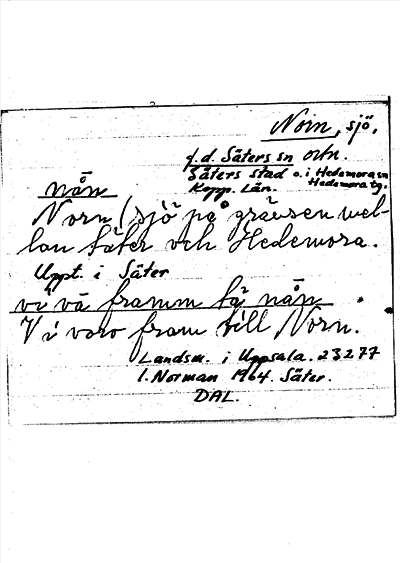 Norn, sjö.
f.d. Säters sn ortn.
Säters stad o. i Hedemora sn
Kopp. Län. Hedemora tg.
nån
Norn (sjö på gränsen mel-
lan Säter och Hedemora.
Uppt. i Säter
vi vå framm tå nån
Vi voro fram till Norn.
Landsm. i Uppsala. 23277
I. Norman 1964. Säter.
DAL.